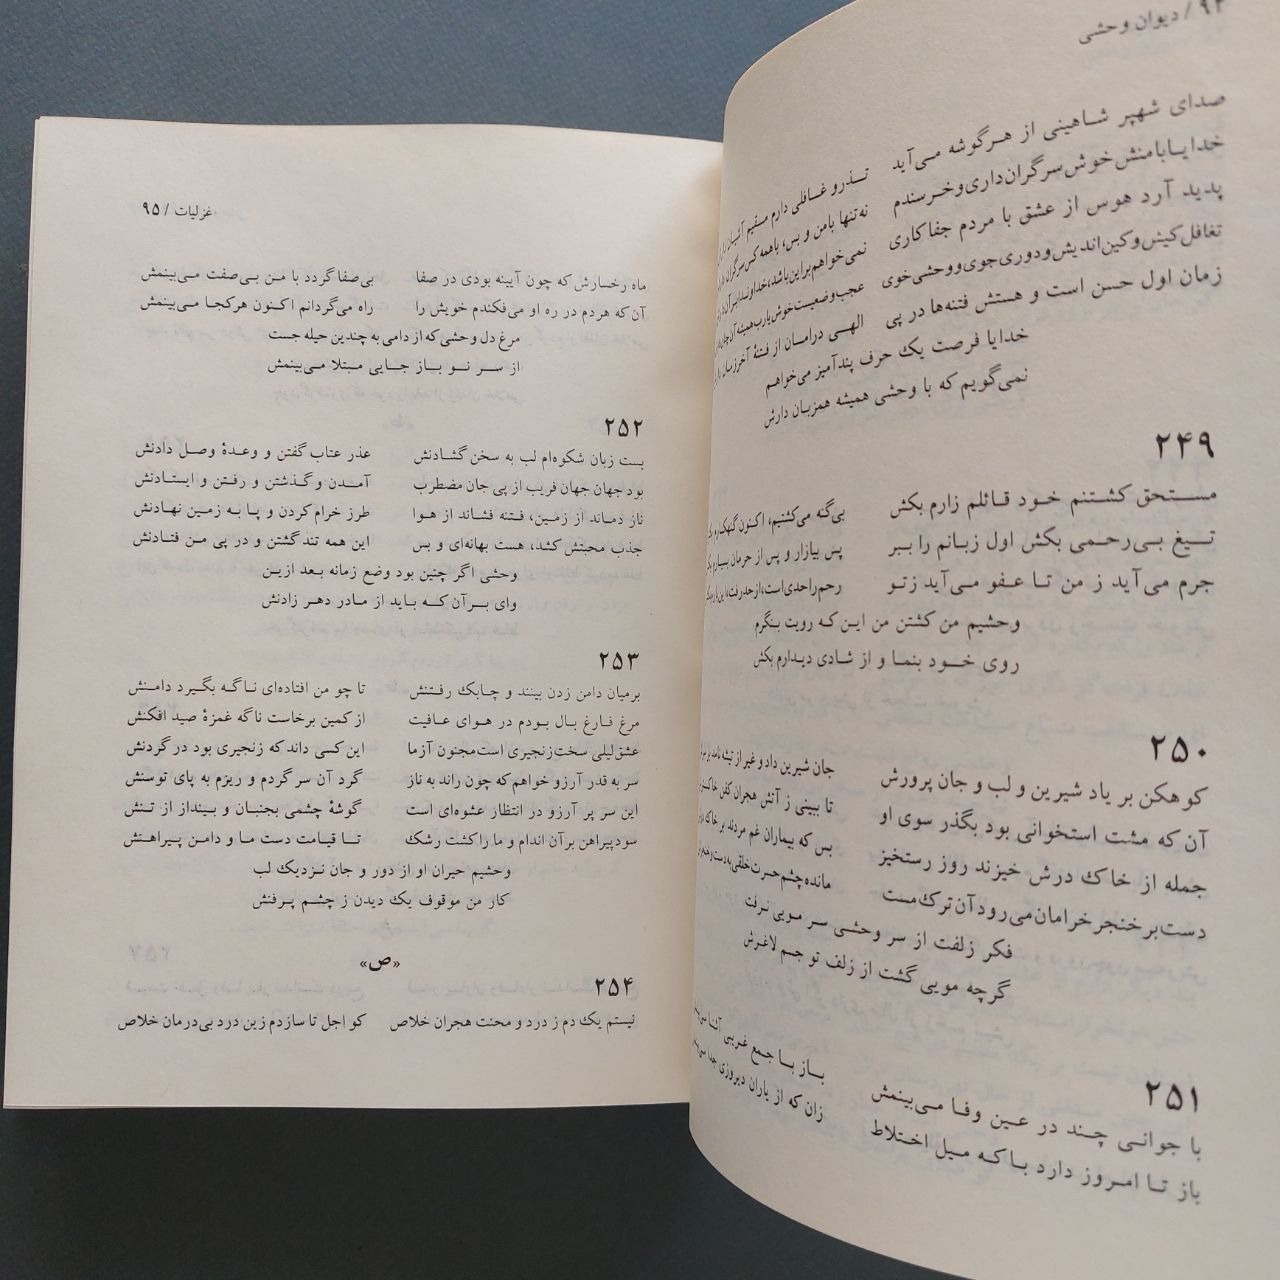 ۹۴ / دیوان وحشی
صدای شهپر شاهینی از هرگوشه می‌آید تذرو غافلی دارم مقیم آشیان
خدایا با منش خوش سرگران داری و خرسندم نه تنها با من و بس، با همه کس سرگران
پدید آرد هوس از عشق با مردم جفاکاری نمی‌خواهم بر این باشد، خداوندا بر آن
تغافل کیش و کین اندیش و دوری جوی و وحشی خوی عجب وضعیست خوش یارب همیشه آن چنان
زمان اول حسن است و هستش فتنه‌ها در پی الهی در امان از فتنهٔ آخر زمان
خدایا فرصت یک حرف پند آمیز می‌خواهم
نمی‌گویم که با وحشی همیشه همزبان دارش
۲۴۹
مستحق کشتنم خود قائلم زارم بکش بی‌گنه می‌کشتیم، اکنون گنهکارم
تیغ بی‌رحمی بکش اول زبانم را ببر پس بیازار و پس از حرمان بسیارم
جرم می‌آید ز من تا عفو می‌آید ز تو رحم را حدی است، از حد رفت، این بار
وحشیم من کشتن من این که رویت بنگرم
روی خود بنما و از شادی دیدارم بکش
۲۵۰
کوهکن بر یاد شیرین و لب و جان پرورش جان شیرین داد و غیر از تیشه نامد بر سرش
آن که مشت استخوانی بود بگذر سوی او تا ببینی ز آتش هجران کفی خاکسترش
جمله از خاک درش خیزند روز رستخیز بس که بیماران غم مردند بر خاک
دست بر خنجر خرامان می‌رود آن ترک مست مانده چشم حسرت خلقی به دست و خنجرش
فکر زلفت از سر وحشی سر مویی نرفت
گرچه مویی گشت از زلف تو جسم لاغرش
۲۵۱
با جوانی چند در عین وفا می‌بینمش باز با جمع غریبی آشنا
باز تا امروز دارد با که میل اختلاط زان که از یاران دیروزی جدا
غزلیات / ۹۵
ماه رخسارش که چون آیینه بودی در صفا بی‌صفا گردد با من بی‌صفت می‌بینمش
آن که هردم در ره او می‌فکندم خویش را راه می‌گردانم اکنون هرکجا می‌بینمش
مرغ دل وحشی که از دامی به چندین حیله جست
از سر نو باز جایی مبتلا می‌بینمش
۲۵۲
بست زبان شکوه‌ام لب به سخن گشادنش عذر عتاب گفتن و وعدهٔ وصل دادنش
بود جهان جهان فریب از پی جان مضطرب آمدن و گذشتن و رفتن و ایستادنش
ناز دماند از زمین، فتنه فشاند از هوا طرز خرام کردن و پا به زمین نهادنش
جذب محبتش کشد، هست بهانه‌ای و بس این همه تند گشتن و در پی من فتادنش
وحشی اگر چنین بود وضع زمانه بعد ازین
وای بر آن که باید از مادر دهر زادنش
۲۵۳
برمیان دامن زدن بینند و چابک رفتنش تا چو من افتاده‌ای ناگه بگیرد دامنش
مرغ فارغ بال بودم در هوای عافیت از کمین برخاست ناگه غمزهٔ صید افکنش
عشق لیلی سخت زنجیری است مجنون آزما این کسی داند که زنجیری بود در گردنش
سر به قدر آرزو خواهم که چون راند به ناز گرد آن سر گردم و ریزم به پای توسنش
این سر پر آرزو در انتظار عشوه‌ای است گوشهٔ چشمی بجنبان و بینداز از تنش
سود پیراهن بر آن اندام و ما را کشت رشک تا قیامت دست ما و دامن پیراهنش
وحشیم حیران او از دور و جان نزدیک لب
کار من موقوف یک دیدن ز چشم پرفنش
«ص»
۲۵۴
نیستم یک دم ز درد و محنت هجران خلاص کو اجل تا سازدم زین درد بی‌درمان خلاص